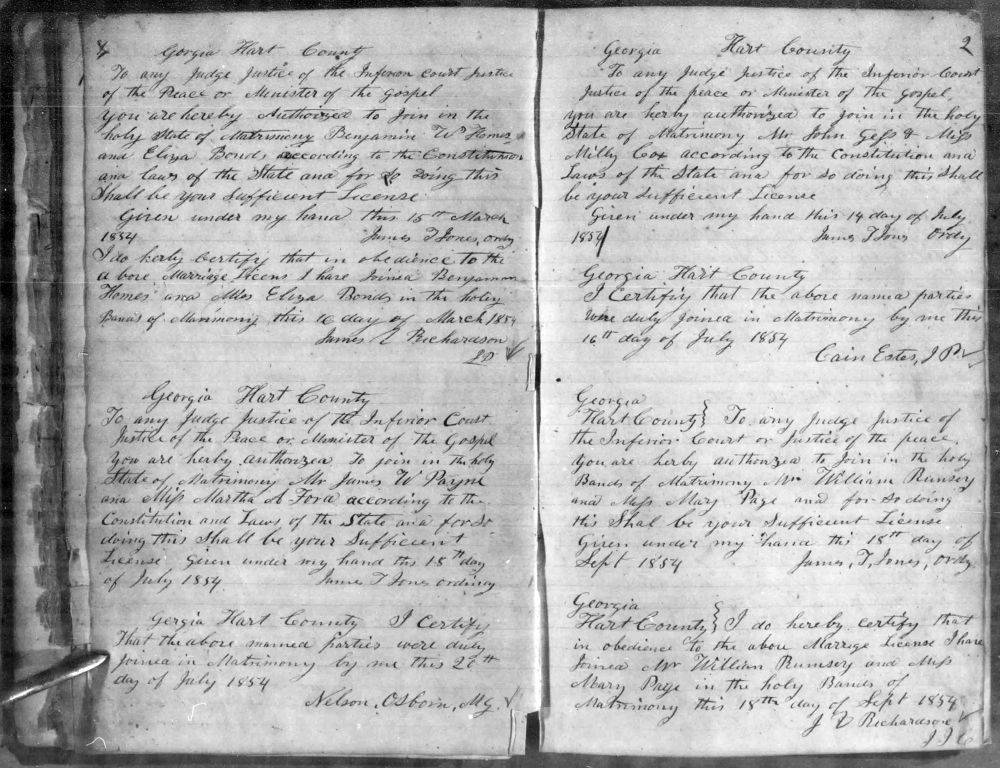 Gorgia Hart County
To any Judge Justice of the Inferior court Justice
of the Peace or Minister of the Gospel
you are hereby Authorized to Join in the
holy State of Matrimony Benjamin W Homes
and Eliza Bonds according to the Constitution
and Laws of the State and for So Doing this
Shall be your Sufficient License
Given under my hand this 15th March
1854 James T Jones, Ordy
I do herby Certify that in obedience to the
above Marriage Licens I have Joined Benjamin
Homes and Miss Eliza Bonds in the holy
Bands of Matrimony this 16 day of March 1854
James Richardson
Georgia Hart County
To any Judge Justice of the Inferior Court
Justice of the Peace or Minister of the Gospel
You are herby authorized To join in the holy
State of Matrimony Mr James W Payne
and Miss Martha A Ford according to the
Constitution and Laws of the State and for So
doing this Shall be your Sufficient
License Given under my hand this 18th day
of July 1854 James T Jones ordinary
Gergia Hart County I Certify
That the above named parties were duly
Joined in Matrimony by me this 20th
day of July 1854
Nelson, Osborn, M,g.
2
Georgia Hart County
To any Judge Justice of the Inferior Court
Justice of the peace or Minister of the Gospel,
you are herby authorized to join in the holy
State of Matrimony Mr John Gess & Miss
Milly Cox according to the Constitution and
Laws of the State and for so doing this Shall
be your Sufficient License
Given under my hand this 14 day of July
1854 James T Jones Ordy
Georgia Hart County
I Certifiy that the above named parties
were duly Joined in Matrimony by me this
16th day of July 1854
Cain Estes, J P
Georgia
Hart County } To any Judge Justice of
the Inferior Court or Justice of the peace,
you are herby authorized to Join in the holy
Bands of Matrimony Mr William Rumsey
and Miss Mary Page and for so doing
this Shal be your Sufficient License
Given under my hand this 18th day of
Sept 1854 James, T, Jones, Ordy.
Georgia
Hart County } I do hereby certify that
in obedience to the above Marrige License I have
Joined Mr William Rumsey and Miss
Mary Page in the holy Bands of
Matrimony this 18th day of Sept 1854
J V Richardson
J I C